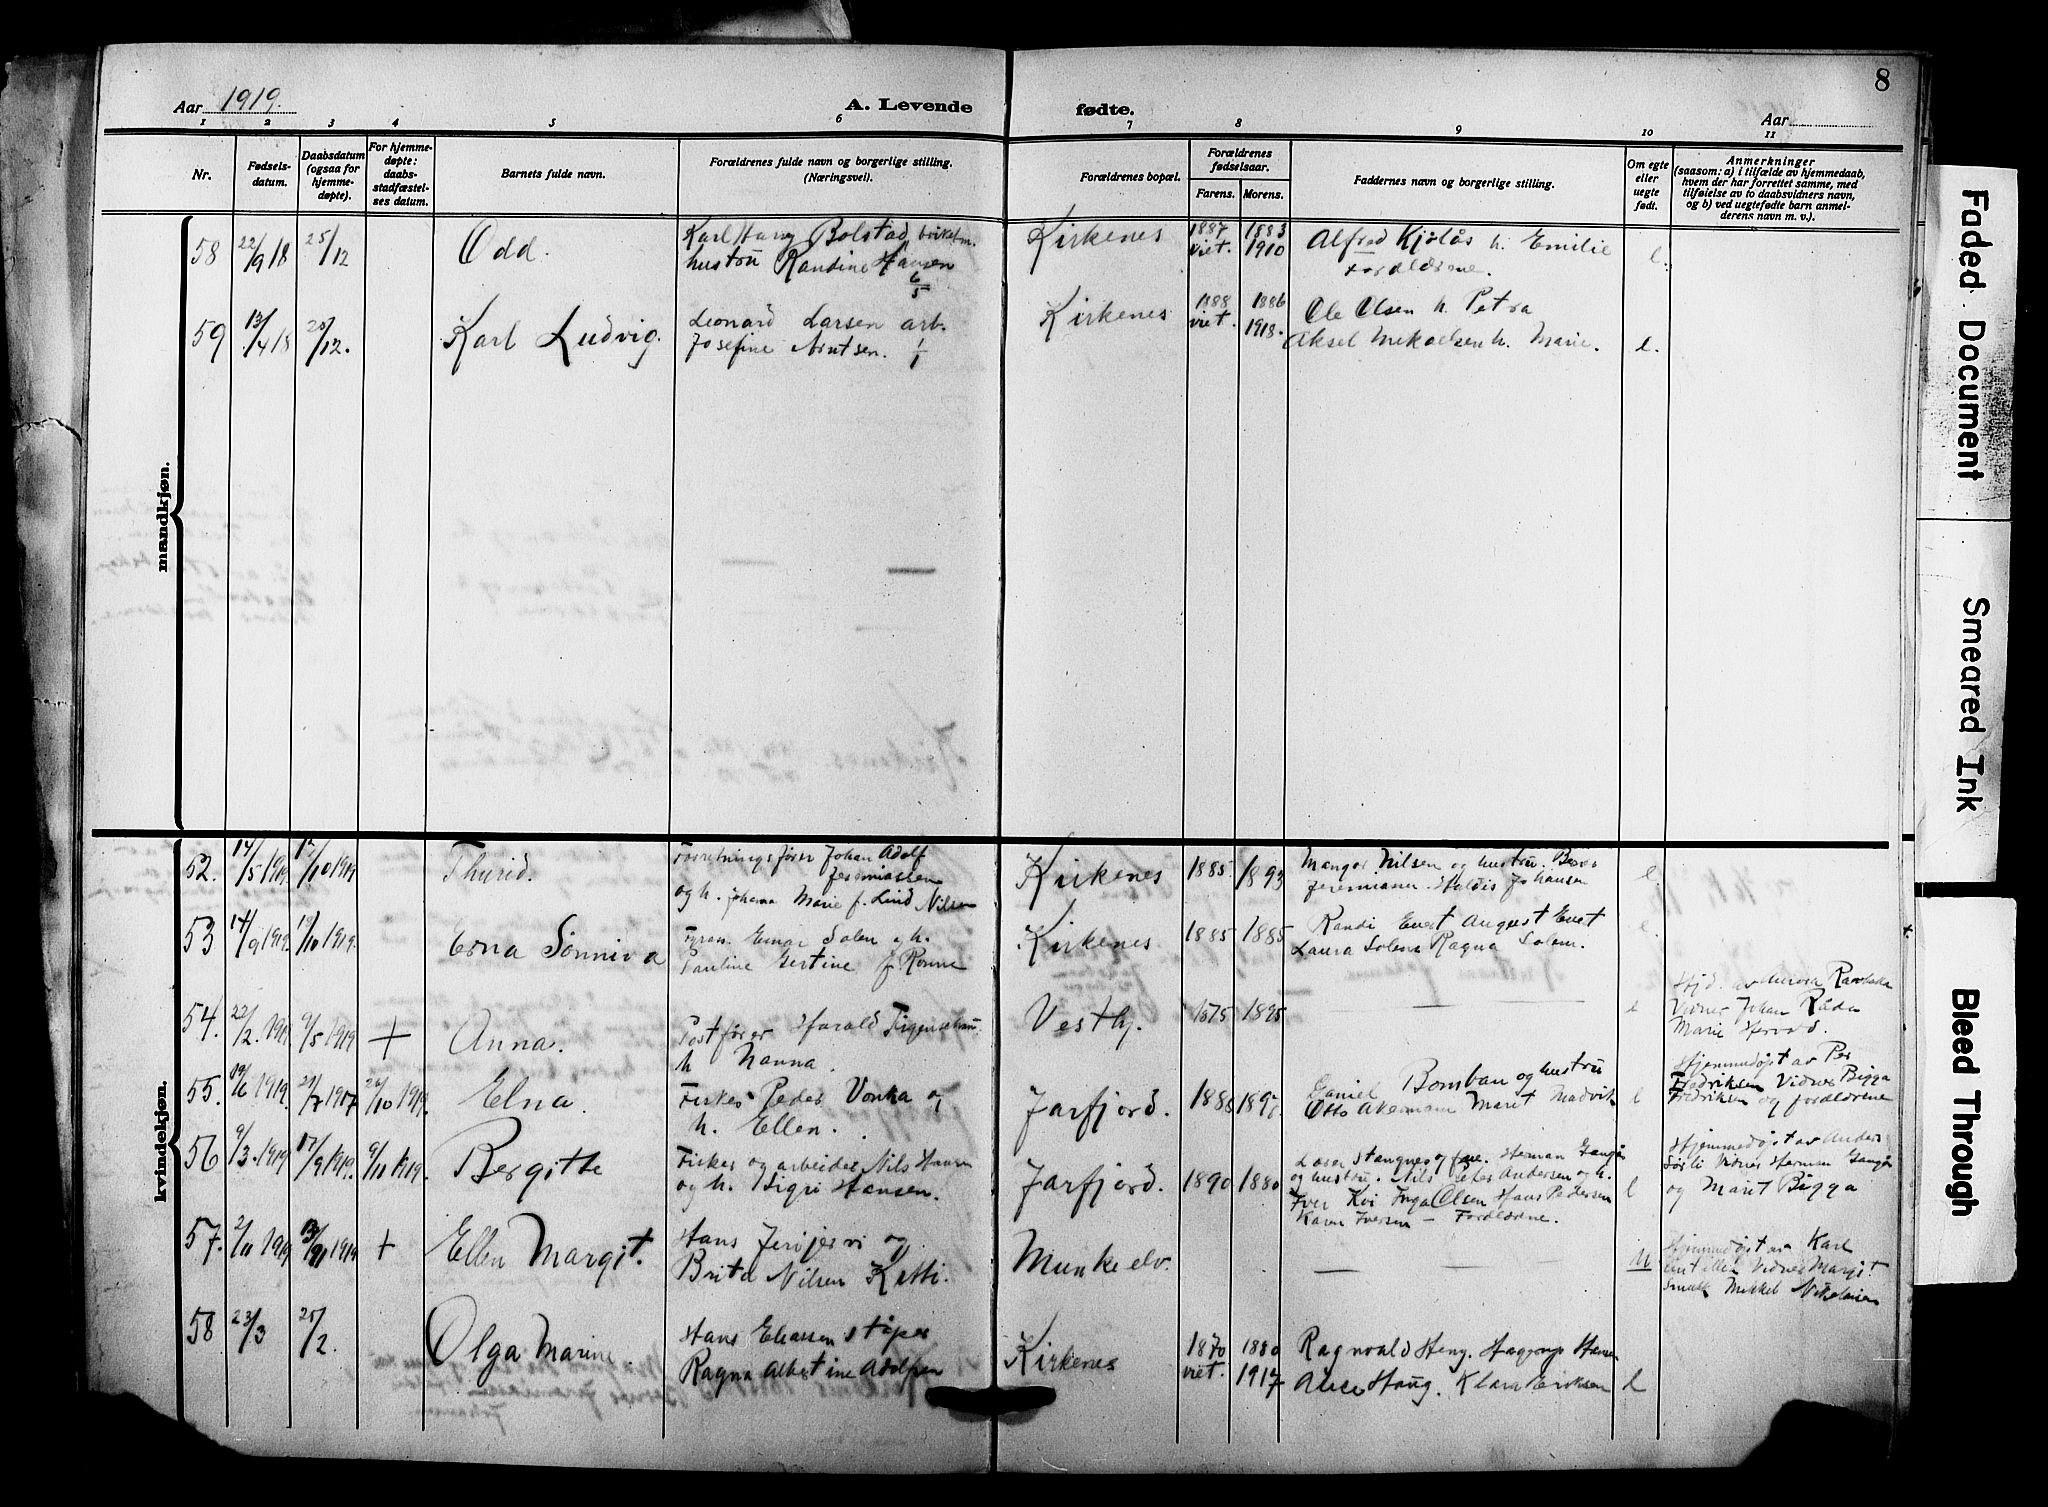 8
Aar 1919.
A. Levende
fødte.
Aar
1 2 3 4 5 6 7 8 9 10 11
Nr.
Fødsels-
datum.
Daabsdatum
(ogsaa for
hjemme-
døpte).
For hjemme-
døpte:
daabs-
stadfæstel-
ses datum.
Barnets fulde navn.
Forældrenes fulde navn og borgerlige stilling.
(Næringsvei).
Forældrenes bopæl.
Forældrenes
fødselsaar.
Farens. Morens.
Faddernes navn og borgerlige stilling.
Om egte
eller
uegte
født.
Anmerkninger
(saasom: a) i tilfælde av hjemmedaab,
hvem der har forrettet samme, med
tilføielse av to daabsvidners navn,
og b) ved uegtefødte barn anmel-
derens navn m. v.).
mandkjøn.
58 22/9 18 25/12 Odd.
Karl Bolstad
hustru Randine Hansen
6/5
Kirkenes
1887 1883
viet. 1910
Alfred Kjølås h. Emilie
Forældrene.
e.
59 13/4 18 25/12. Karl Ludvig.
Leonard Larsen arb.
Josefine 1/1
Kirkenes
1888 1886
viet. 1918.
Ole Olsen h. Petra
Aksel Mikaelsen h. Marie.
e.
kvindekjøn.
52. 14/5 1919. 12/10 1919 Thurid.
Forretningsfører Johan Adolf
Jeremiassen
og h. Johanna Marie f. Lind Nilsen
Kirkenes 1885. 1893
Mangor Nilsen og hustru.
Haldis Johansen
e.
53 14/9 1919. 19/10 1919. Erna Sønniva
Einar Solem og h.
Pauline Gertine f. Rønne
Kirkenes 1885 1885
Randi Evet August Evet
Laura Solem Ragna Solem.
e.
54. 22/2. 1919 9/5 1919 + Anna.
Postfører Harald
h Nanna.
Vestbj. 1875 1895
e
Hjd. av Aurora
Vidner Johan
Marie
55. 19/6 1919. 21/7 1917 26/10 1919. Elna.
Fisker Peder Vonka og
h. Ellen.
Jarfjord. 1888
Daniel Bomban og hustru
Otto Akermann Marit Madvik
e
Hjemmedøpt av Per
Fredriksen Vidner Bigga
Fredriksen og forældrene
56 9/3. 1919 17/9 1919. 9/11 1919. Bergitte
Fisker og arbeider Nils Hansen
og h. Sigri Hansen.
Jarfjord. 1890 1880
Lærer Stangnes og frue. Herman
og hustru. Nils Peter Andersen og h.
Iver Kvi Inga Olsen Hans Pedersen
Karen Iversen – Forældrene.
e
Hjemmedøpt av Anders
Sørli Vidner Herman
og Marit Bigga
57. 2/11 1919 1919 + Ellen Margit.
Hans Jerijervi og
Brita Nilsen Kitti.
Munkelv.
u
Hjemmedøpt av Karl
Vidner Margit
Smuk Mikkel Nikolaisen
58 23/3 25/2. Olga Marine.
Hans Eliassen støper
Ragna Albertine Adolfsen
Kirkenes
1870 1880
viet. 1917
Ragnvald Heng. Haggrup Hansen
Alice Haug. Klara Eriksen
e
Faded Document
Smeared Ink
Bleed Through